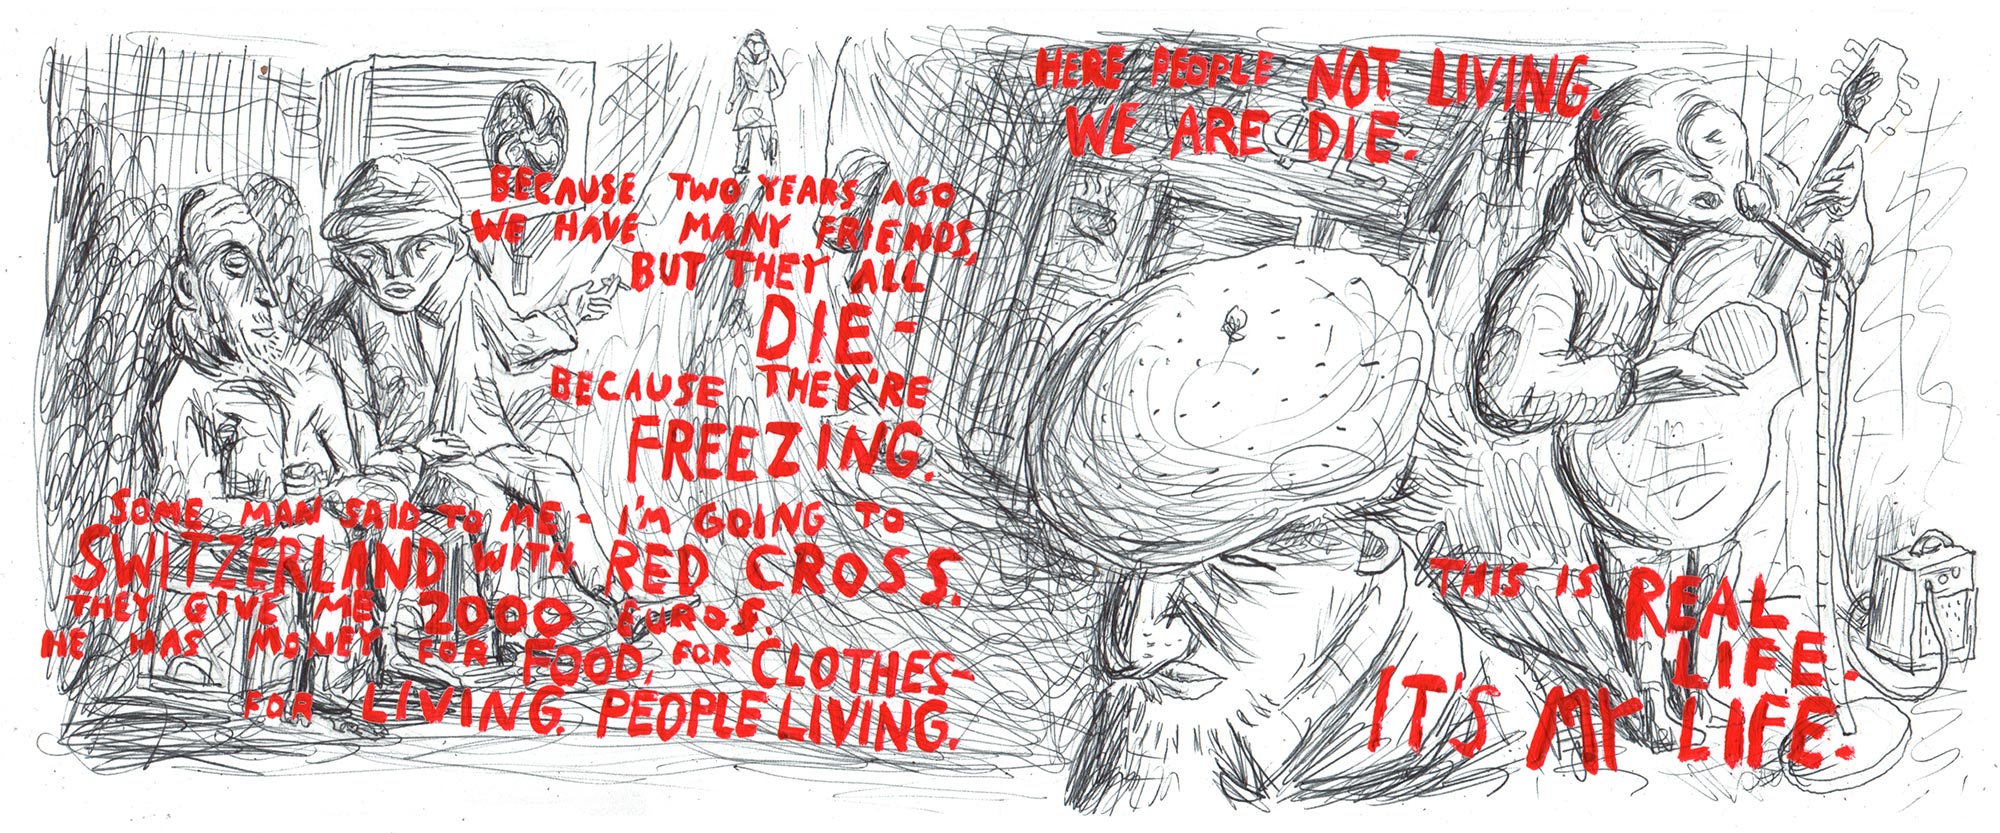 BECAUSE TWO YEARS AGO
WE HAVE MANY FRIENDS,
BUT THEY ALL
DIE -
BECAUSE THEY'RE
FREEZING.
SOME MAN SAID TO ME - I'M GOING TO
SWITZERLAND WITH RED CROSS.
THEY GIVE ME 2000 EUROS.
HE HAS MONEY FOR FOOD, FOR CLOTHES-
FOR LIVING. PEOPLE LIVING.
HERE PEOPLE NOT LIVING.
WE ARE DIE.
THIS IS REAL
LIFE.
IT'S MY LIFE.